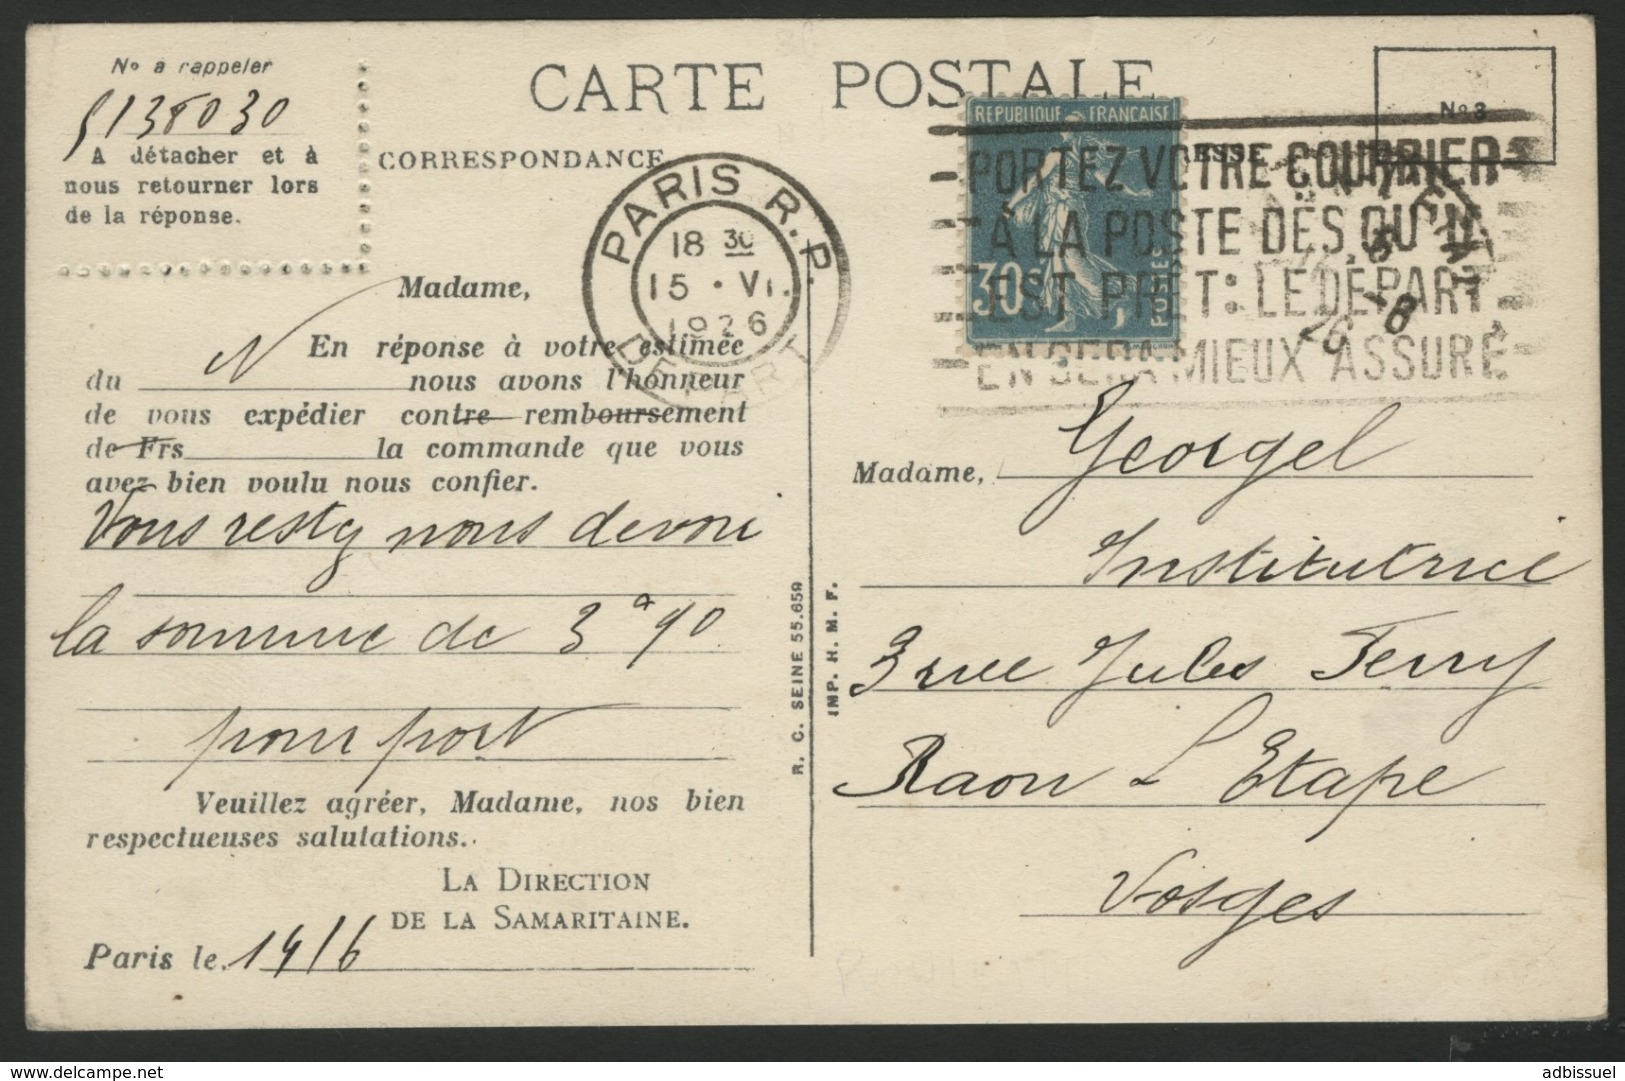 CARTE POSTALE
No a rappeler
5138030
A détacher et à
nous retourner lors
de la réponse.
CORRESPONDANCE
PARIS R.P.
18 30
15 • VI.
1926
DEPART
Madame,
En réponse à votre estimée
du N nous avons l'honneur
de vous expédier contre remboursement
de Frs la commande que vous
avez bien voulu nous confier.
Vous restez nous devoir
la somme de 3 90
pour port
Veuillez agréer, Madame, nos bien
respectueuses salutations.
LA DIRECTION
DE LA SAMARITAINE.
Paris le 14/6
R. C. SEINE 55.659
IMP. H. M. F.
REPUBLIQUE FRANÇAISE
30
POSTES
No 3
PORTEZ VOTRE COURRIER
À LA POSTE DËS QU'IL
EST PRÊT: LE DÉPART
EN SERA MIEUX ASSURÉ
Madame, Georgel
Institutrice
3 rue Jules Ferry
Raon L'Etape
Vosges
delcampe.net
adbissuel